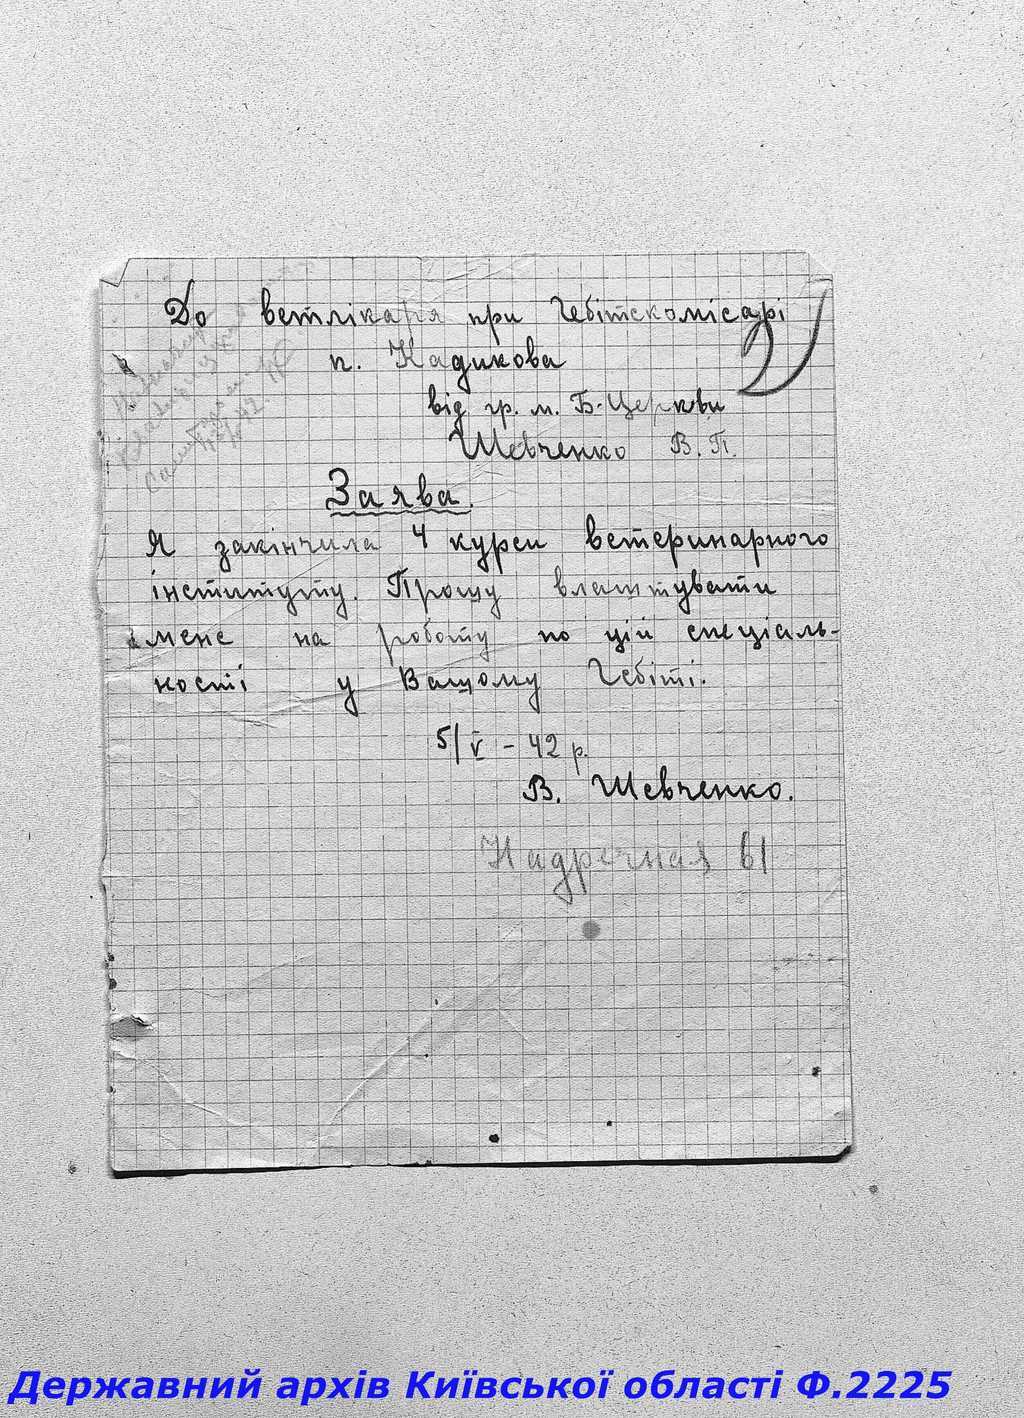 До ветлікаря при Гебітскомісарі
п. Кадикова
від гр. м. Б-Церкви
Шевченко В.П.
Заява.
Я закінчила 4 курси ветеринарного
інституту. Прошу влаштувати
мене на роботу по цій спеціаль-
ності у Вашому Гебіті.
5/V - 42 р.
В. Шевченко.
Надречная 61
Державний архів Київської області Ф.2225